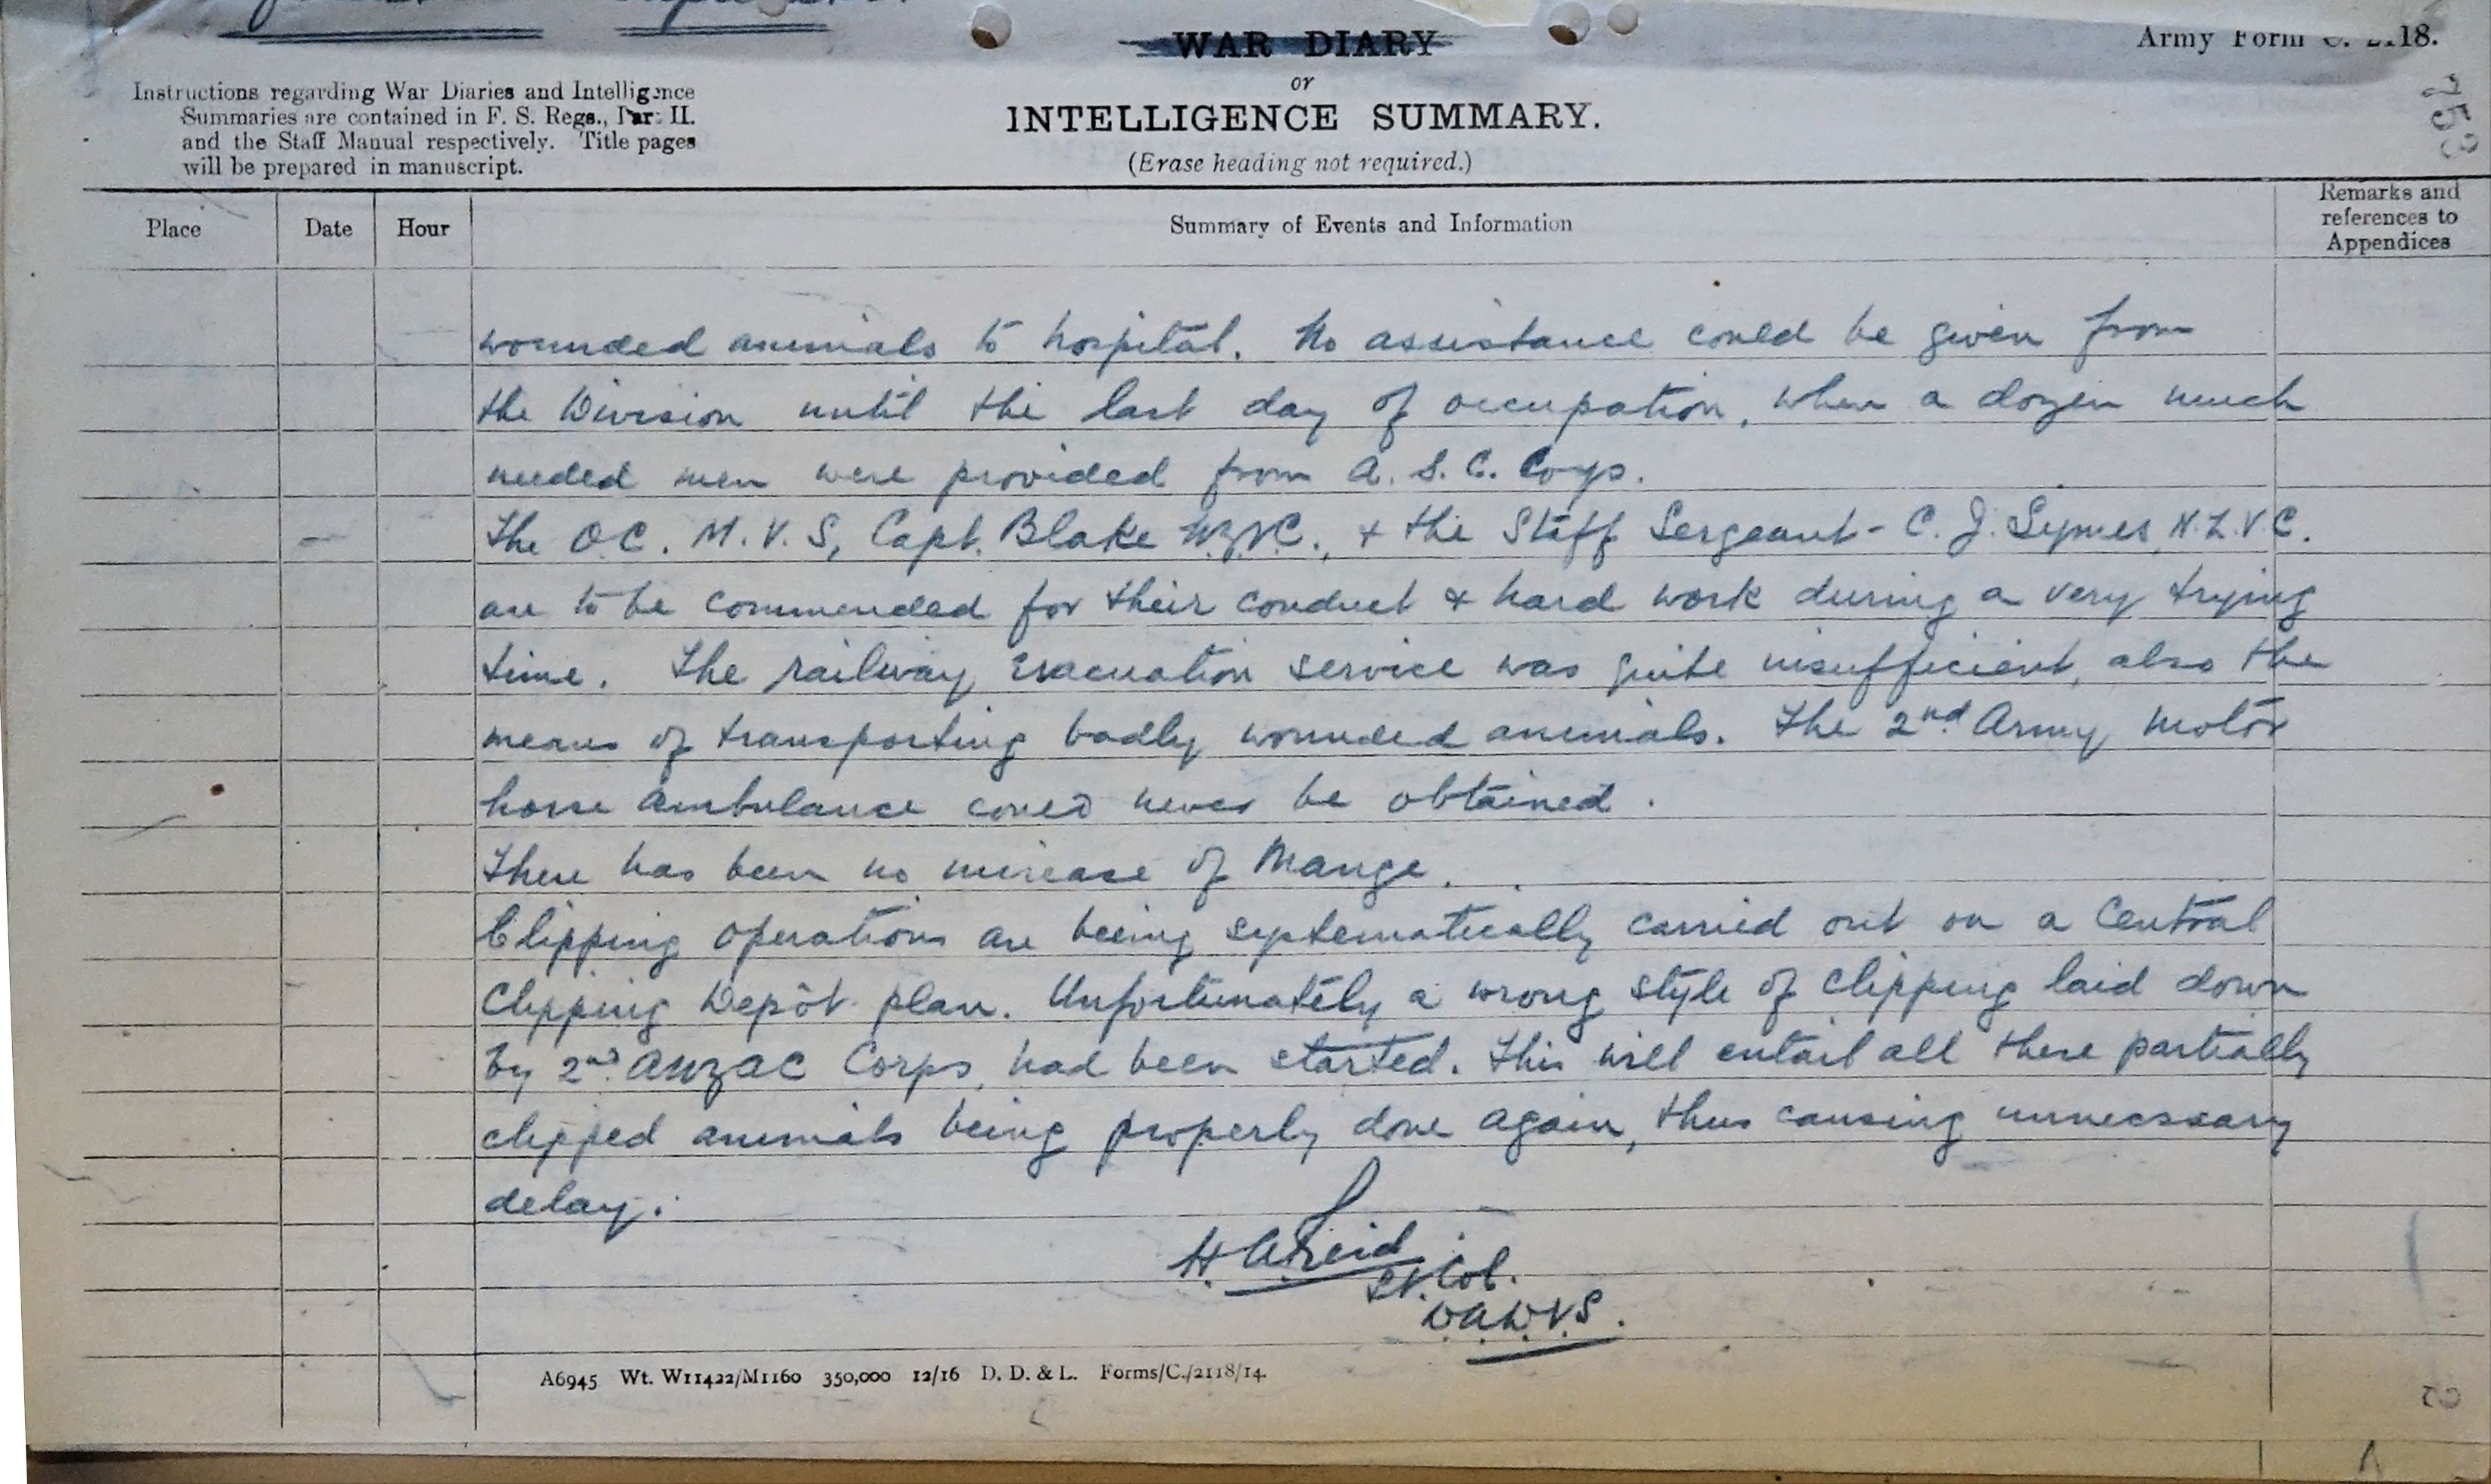 WAR DIARY
or
INTELLIGENCE SUMMARY.
(Erase heading not required.)
Army Form C. 2118.
Instructions regarding War Diaries and Intelligence
Summaries are contained in F. S. Regs., Part II.
and the Staff Manual respectively. Title pages
will be prepared in manuscript.
Place Date Hour Summary of Events and Information Remarks and
references to
Appendices
wounded animals to hospital. No assistance could be given from
the Division until the last day of occupation, when a dozen much
needed men were provided from A. S. C. Coys.
The O.C. M. V. S, Capt. Blake N.Z.V.C., & the Staff Sergeant - C. J. Symes, N.Z.V.C.
are to be commended for their conduct & hard work during a very trying
time. The railway evacuation service was quite insufficient, also the
means of transporting badly wounded animals. The 2nd Army motor
horse ambulance could never be obtained.
There has been no increase of Mange.
Clipping operations are being systematically carried out on a Central
Clipping Depôt plan. Unfortunately a wrong style of clipping laid down
by 2nd ANZAC Corps, had been started. This will entail all these partially
clipped animals being properly done again, thus causing unnecessary
delay.
H. A. Reid
Lt. Col.
D.A.D.V.S.
A6945 Wt. W11422/M1160 350,000 12/16 D. D. & L. Forms/C./2118/14.